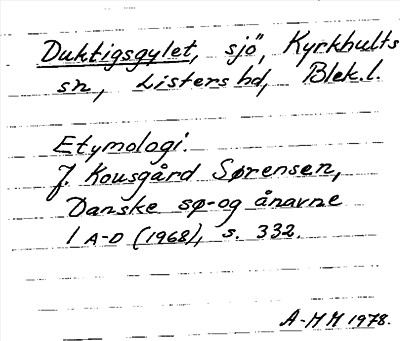 Duktigsgylet, sjö, Kyrkhults
sn, Listers hd, Blek. l.
Etymologi:
J. Kousgård Sørensen,
Danske sø- og ånavne
1 A-D (1968), s. 332.
A-MM 1978.